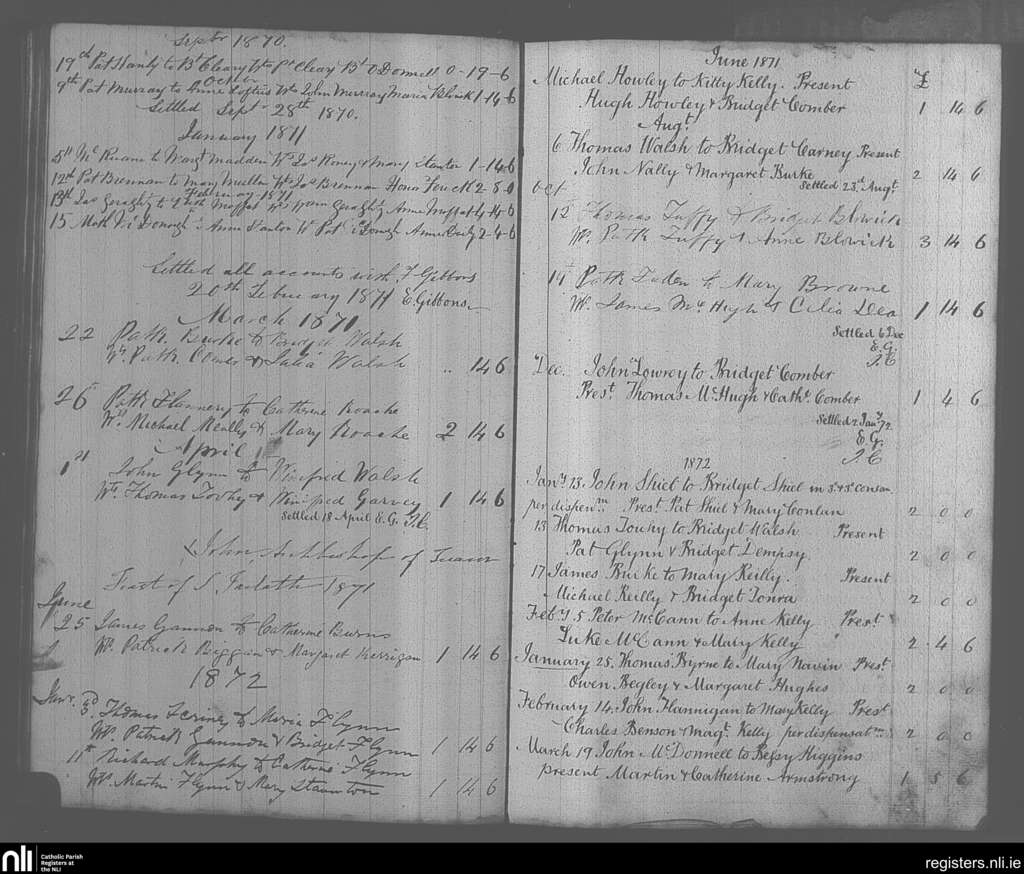 Sepbr 1870.
19th Pat Hanly to Bt Cleary Wts Pt Cleary Bt O'Donnell 0-19-6
October
9th Pat Murray to Anne Loftus Wts John Murray Maria Blowick 1-14-6
Settled Sepr 28th 1870.
January 1871
Mc Ruane to Margt Madden Ws Jas Roney & Mary Staunton 1-14-6
12th Pat Brennan to Mary Mullen Wt Jas Brennan Honor Feuck 2-8-0
February 1871
13th Jas Geraghty to Moffat Wts Geraghty Anne Moffat 1-14-6
15 Math McDonogh Anne Wt Pat McDonogh Anne 2-4-6
Settled all accounts with F Gibbons
20th February 1871 E. Gibbons
March 1871
22 Path Burke to Bridget Walsh
Wts Path & Walsh .. 14 6
26 Path Flannery to Catherine Roache
Wts Michael Neally & Mary Roache 2 14 6
April
1st John Glynn to Winifred Walsh
Wts Thomas Toohy & Winifred Garvey 1 14 6
Settled 18 April E. G. P.C.
John Archbishop of Tuam
Feast of S. Jarlath 1871
June
25 James Gannon to Catherine Burns
Ws. Patrick Biggins & Margaret Kerrigan 1 14 6
1872
Janr. 3d Thomas to Maria Flynn
Ws. Patrick Gannon & Bridget Flynn 1 14 6
11th Richard Murphy to Catherine Flynn
Ws Martin Flynn & Mary Staunton 1 14 6
June 1871
Michael Howley to Kitty Kelly. Present £
Hugh Howley & Bridget Comber 1 14 6
Augt.
6 Thomas Walsh to Bridget Carney Present
John Nally & Margaret Burke 2 14 6
Settled 23rd Augt.
Oct
12 Thomas Tuffy & Bridget Blowick
Ws. Path Tuffy & Anne Blowick 3 14 6
14 Path Luden to Mary Browne
Ws. James McHugh & Celia Dea 1 14 6
Settled 6 Dec
E. G.
P. C
Dec. John Lowrey to Bridget Comber
Prest. Thomas McHugh & Cathe. Comber 1 4 6
Settled 2 Jany. 72.
E. G.
P. C
1872
Jany 13 John Shiel to Bridget Shiel in 3. & 3. consan.
per dispenm. Prest. Pat Shiel & Mary Conlan 2 0 0
13 Thomas Touhy to Bridget Walsh Present
Pat Glynn & Bridget Dempsy 2 0 0
17 James Burke to Mary Reilly. Present
Michael Reilly & Bridget Tonra 2 0 0
Feby 5 Peter McCann to Anne Kelly Prest.
Luke McCann & Mary Kelly 2 . 4 6
January 25. Thomas Byrne to Mary Navin Prest.
Owen Begley & Margaret Hughes 2 0 0
February 14. John Flannigan to Mary Kelly Prest
Charles Benson & Magt. Kelly per dispensatne. 2 0 0
March 19 John McDonnell to Bessy Higgins
present Martin & Catherine Armstrong 1 5 6
nli Catholic Parish
Registers at
the NLI
registers.nli.ie